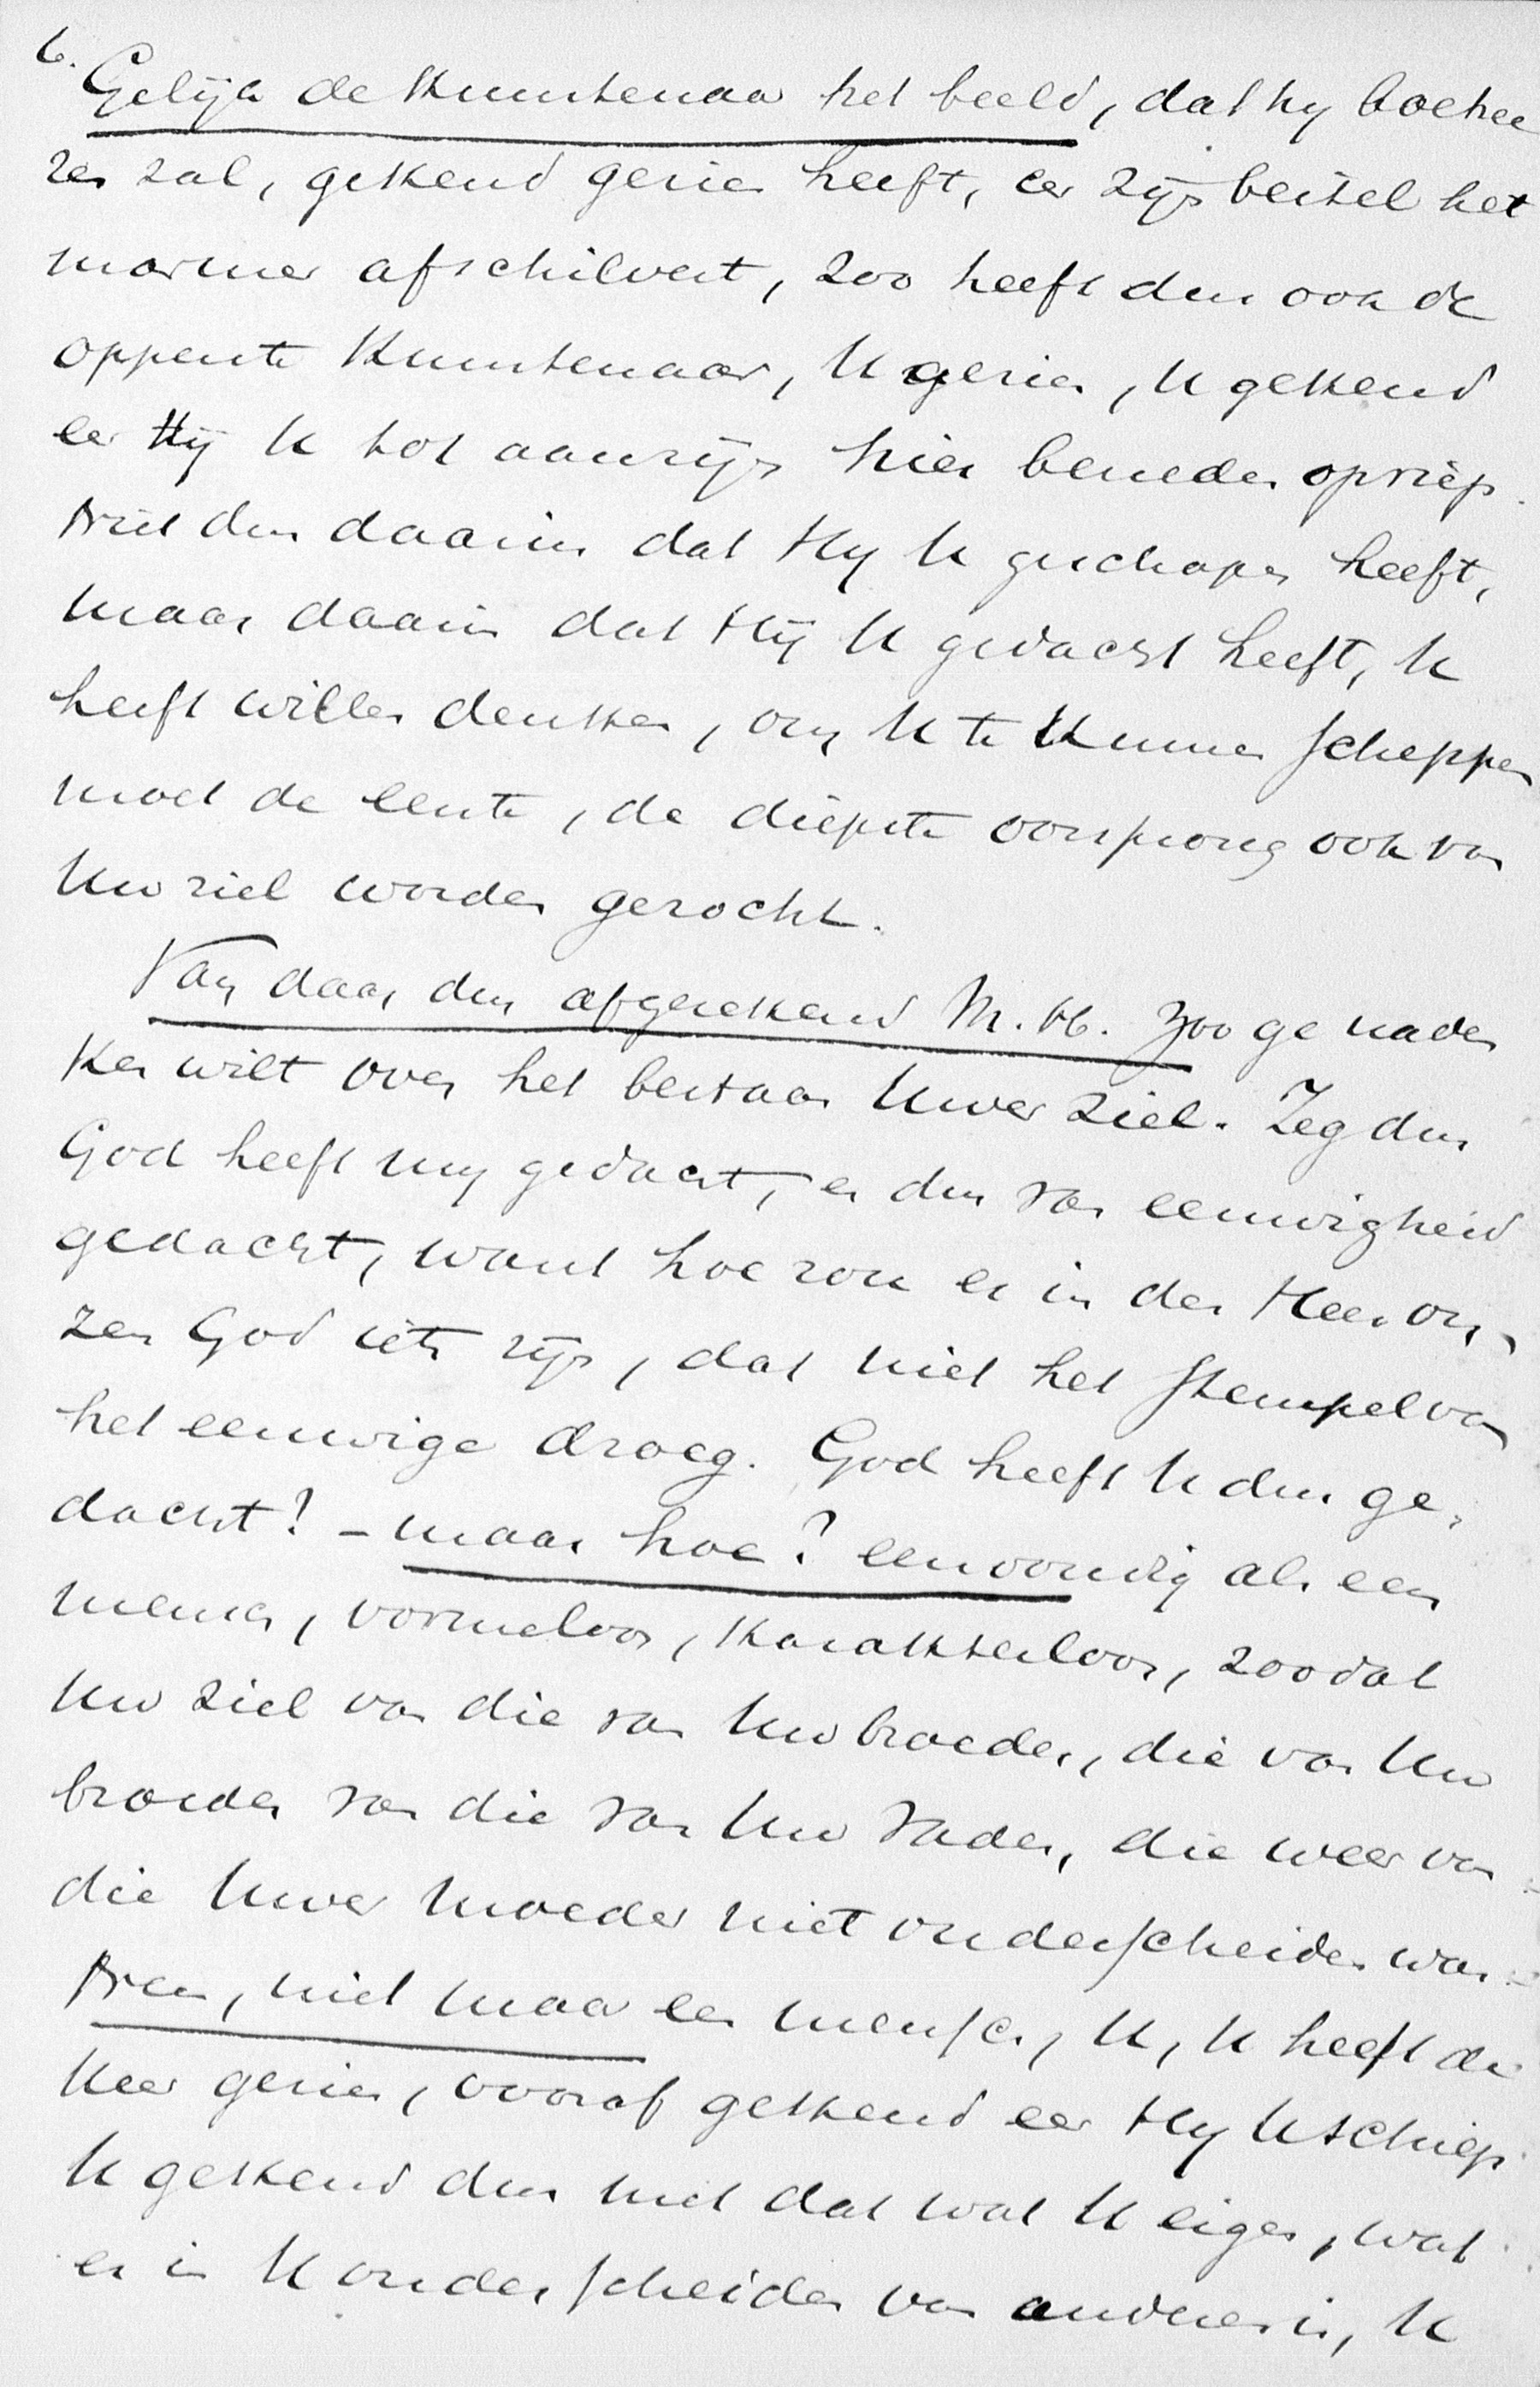 6.
Gelijk de Kunstenaar het beeld, dat hy boetsee
ren zal, gekend gezien heeft, eer zijn beitel het
marmer afschilvert, zoo heeft dus ook de
opperste Kunstenaar, U gezien, U gekend
eer Hij U tot aanzijn hier beneden opriep.
Niet dus daarin dat Hy U geschapen heeft,
maar daarin dat Hij U gedacht heeft, U
heeft willen denken, om U te Kunnen scheppen
moet de eerste, de diepste oorsprong ook van
Uw ziel worden gezocht.
Van daar dus afgerekend M. H. zoo ge naden
ken wilt over het bestaan Uwer ziel. Zeg dus
God heeft my gedacht, en dus van eeuwigheid
gedacht, want hoe zou er in den Heer on-
zen God iets zijn, dat niet het stempel van
het eeuwige droeg. God heeft U dus ge-
dacht! - maar hoe? eenvoudig als een
mensch, vormeloos, karakterloos, zoodat
Uw ziel van die van Uw broeder, die van Uw
broeder van die van Uw Vader, die weer van
die Uwer Moeder niet onderscheiden was.
Neen, niet maar een mensch, U, U heeft de
Heer gezien, vooraf gekend eer Hy U schiep
U gekend dus met dat wat U eigen, wat
er in U onderscheiden van anderen is, U